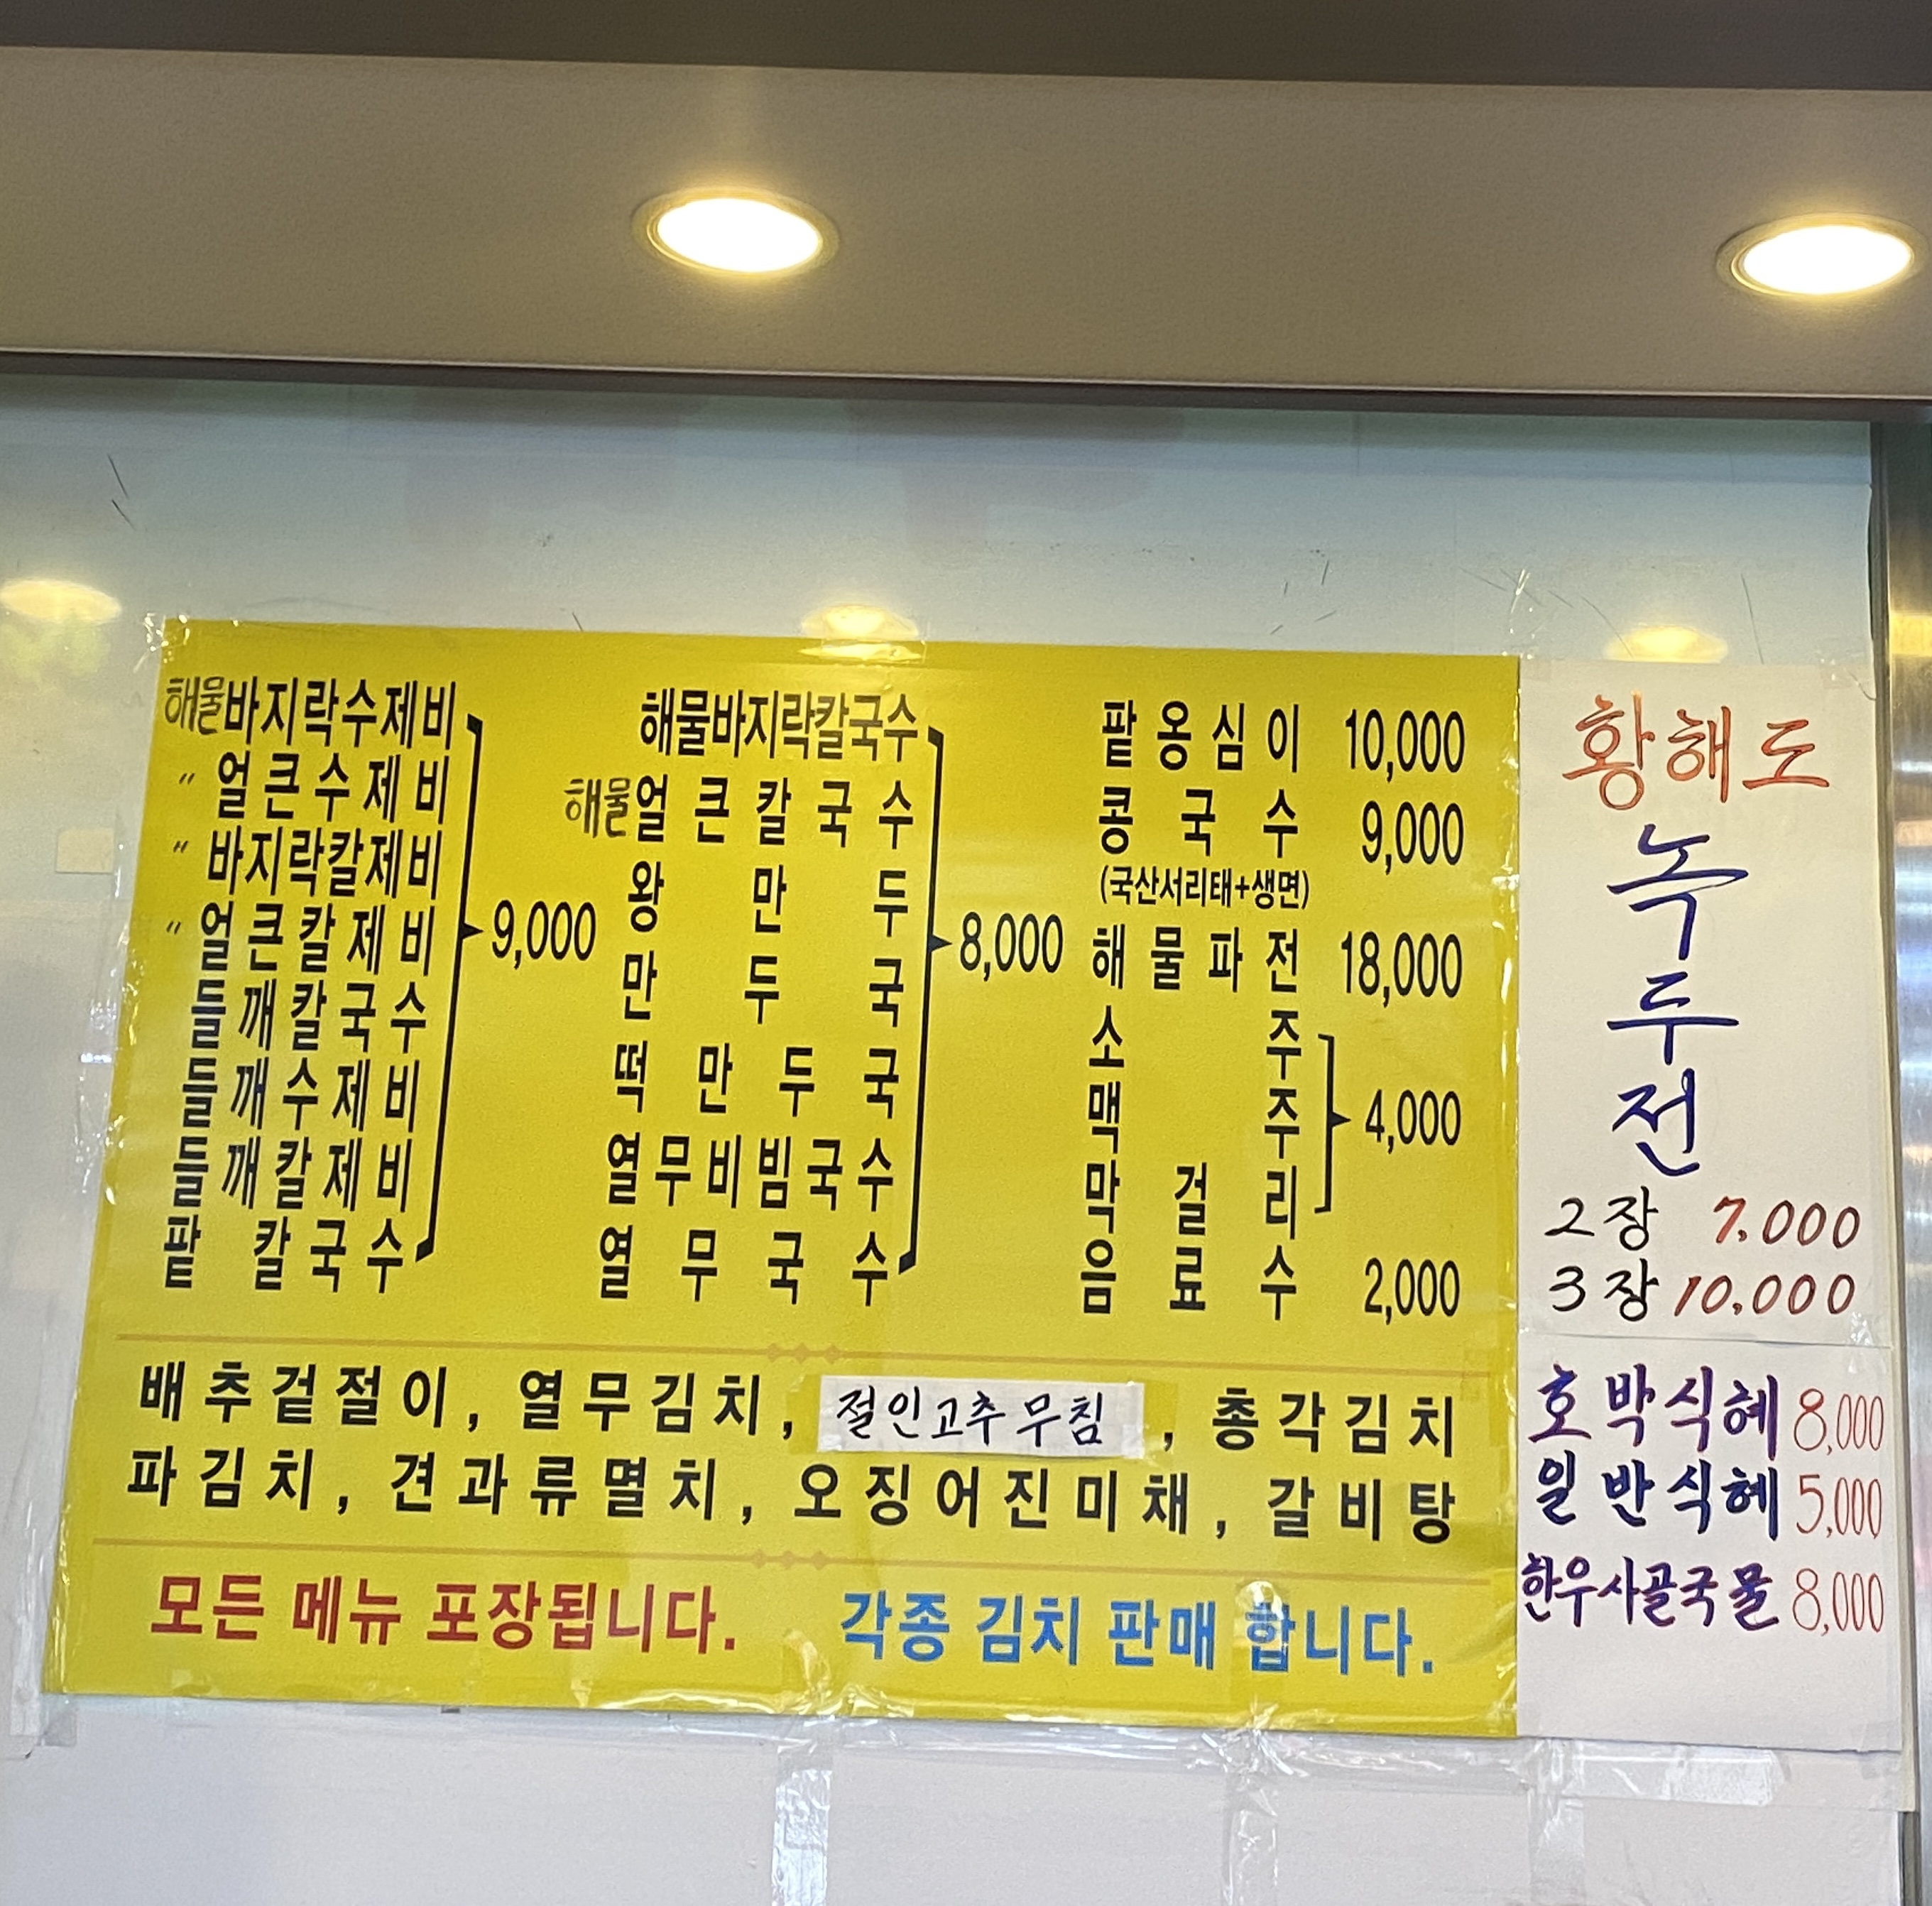 해물바지락수제비
〃 얼큰수제비
〃 바지락칼제비
〃 얼큰칼제비
들깨칼국수
들깨수제비
들깨칼제비
팥칼국수
9,000
해물바지락칼국수
해물얼큰칼국수
왕만두
만두국
떡만두국
열무비빔국수
열무국수
8,000
팥옹심이 10,000
콩국수 9,000
(국산서리태+생면)
해물파전 18,000
소주
맥주
막걸리
4,000
음료수 2,000
배추겉절이, 열무김치, 절인고추무침, 총각김치
파김치, 견과류멸치, 오징어진미채, 갈비탕
모든 메뉴 포장됩니다. 각종 김치 판매 합니다.
황해도
녹
두
전
2장 7.000
3장 10.000
호박식혜 8,000
일반식혜 5,000
한우사골국물 8,000